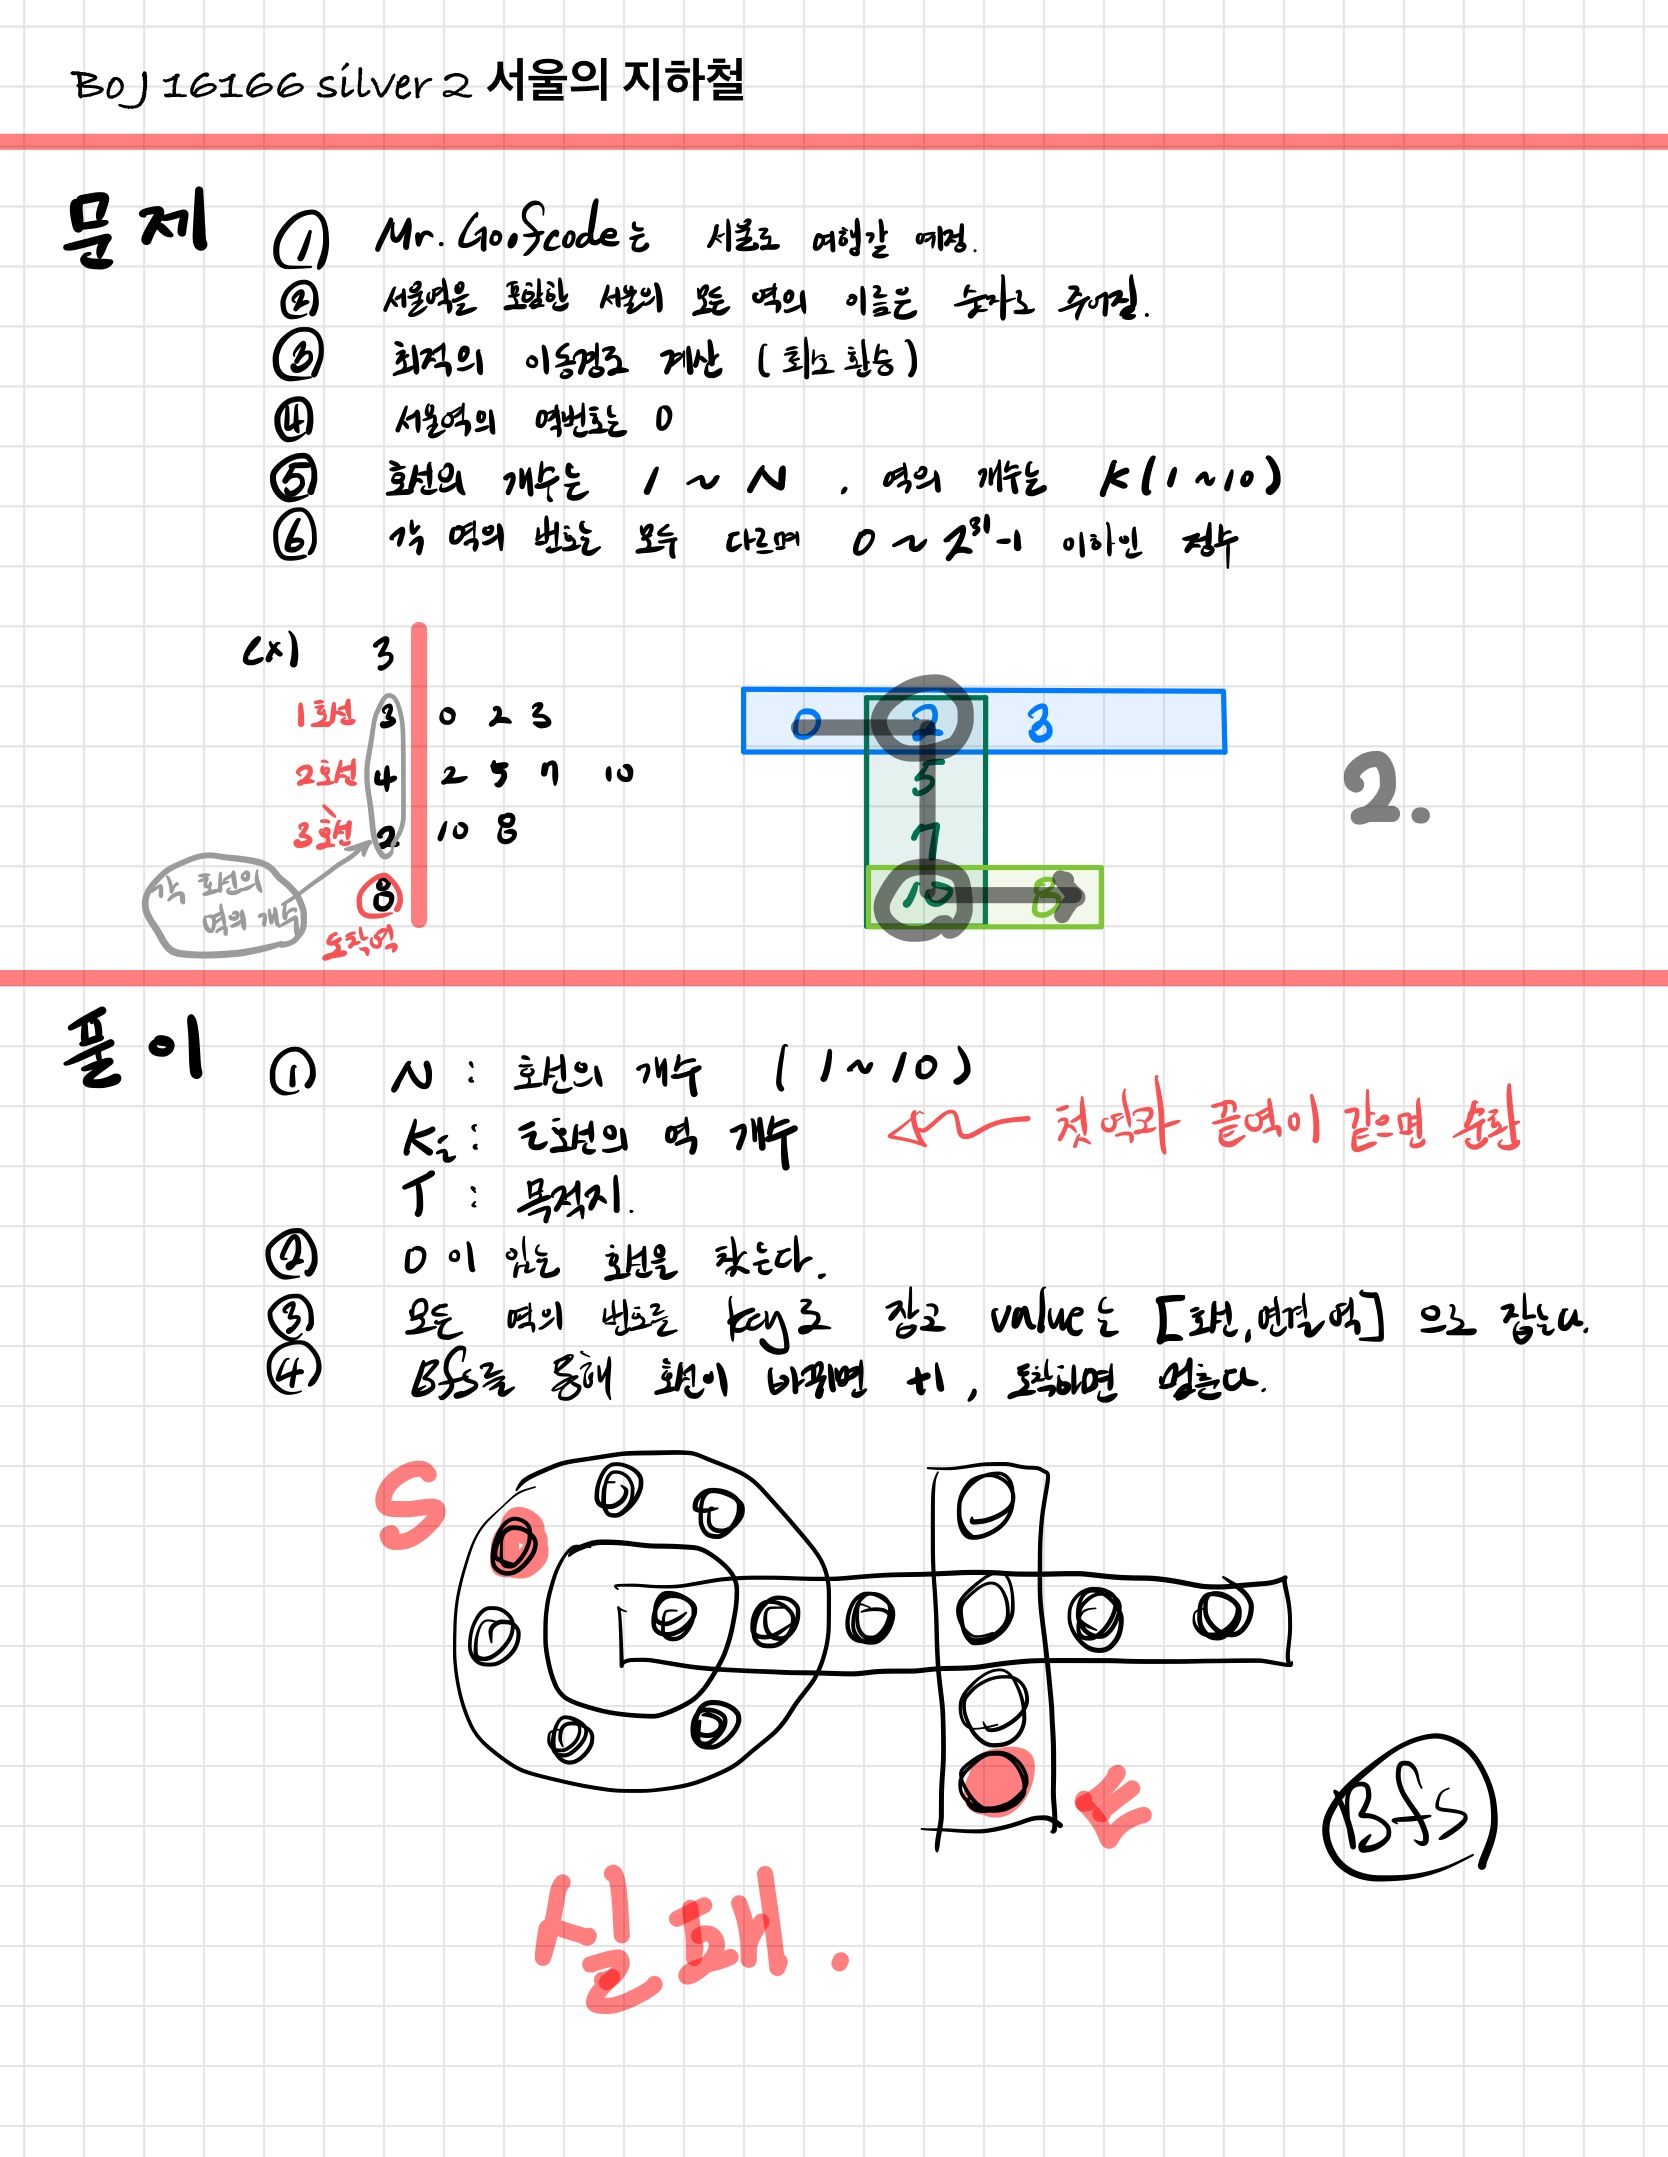 BOJ 16166 silver 2 서울의 지하철
문제
① Mr. Goofcode는 서울로 여행갈 예정.
② 서울역을 포함한 서울의 모든 역의 이름은 숫자로 주어짐.
③ 최적의 이동경로 계산 (최소 환승)
④ 서울역의 역번호는 0
⑤ 호선의 개수는 1 ~ N . 역의 개수는 K (1 ~ 10)
⑥ 각 역의 번호는 모두 다르며 0 ~ 2³¹-1 이하인 정수
ex) 3
1호선 3 0 2 3
2호선 4 2 5 7 10
3호선 2 10 8
8
도착역
각 호선의
역의 개수
0 2 3
5
7
10 8
2.
풀이
① N : 호선의 개수 ( 1 ~ 10 )
Ki : i호선의 역 개수
첫역과 끝역이 같으면 순환
T : 목적지.
② 0이 있는 호선을 찾는다.
③ 모든 역의 번호를 key로 잡고 value는 [호선, 연결역] 으로 잡는다.
④ Bfs를 통해 호선이 바뀌면 +1, 도착하면 멈춘다.
S
E
Bfs
실패.